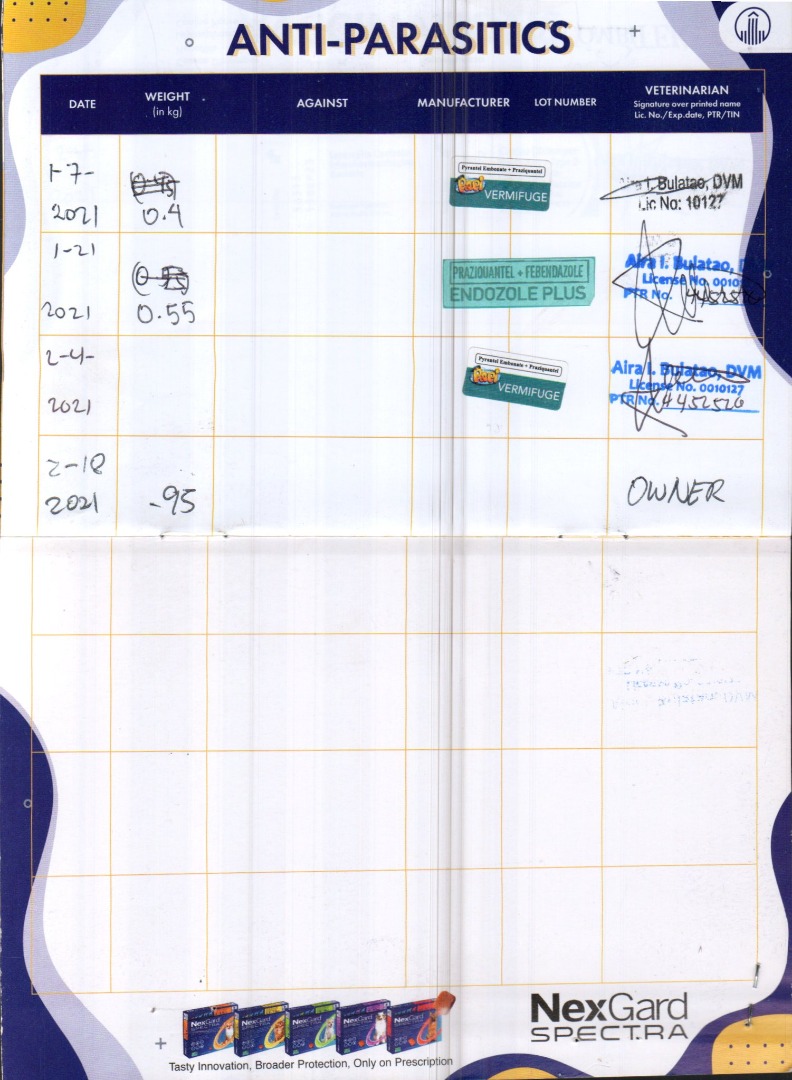 ANTI-PARASITICS
DATE
WEIGHT
(in kg)
AGAINST
MANUFACTURER
LOT NUMBER
VETERINARIAN
Signature over printed name
Lic. No./Exp.date, PTR/TIN
1-7-
2021
0.4
Pyrantel Embonate + Praziquantel
VERMIFUGE
I. Bulatao, DVM
Lic No: 10127
1-21
2021
0.55
PRAZIQUANTEL + FEBENDAZOLE
ENDOZOLE PLUS
Aira I. Bulatao,
License No. 0010
PTR No. 4452526
2-4-
2021
Pyrantel Embonate + Praziquantel
VERMIFUGE
Aira I. Bulatao, DVM
License No. 0010127
PTR No. 4452526
2-18
2021
-95
OWNER
NexGard
NexGard
NexGard
NexGard
NexGard
Tasty Innovation, Broader Protection, Only on Prescription
NexGard
SPECTRA